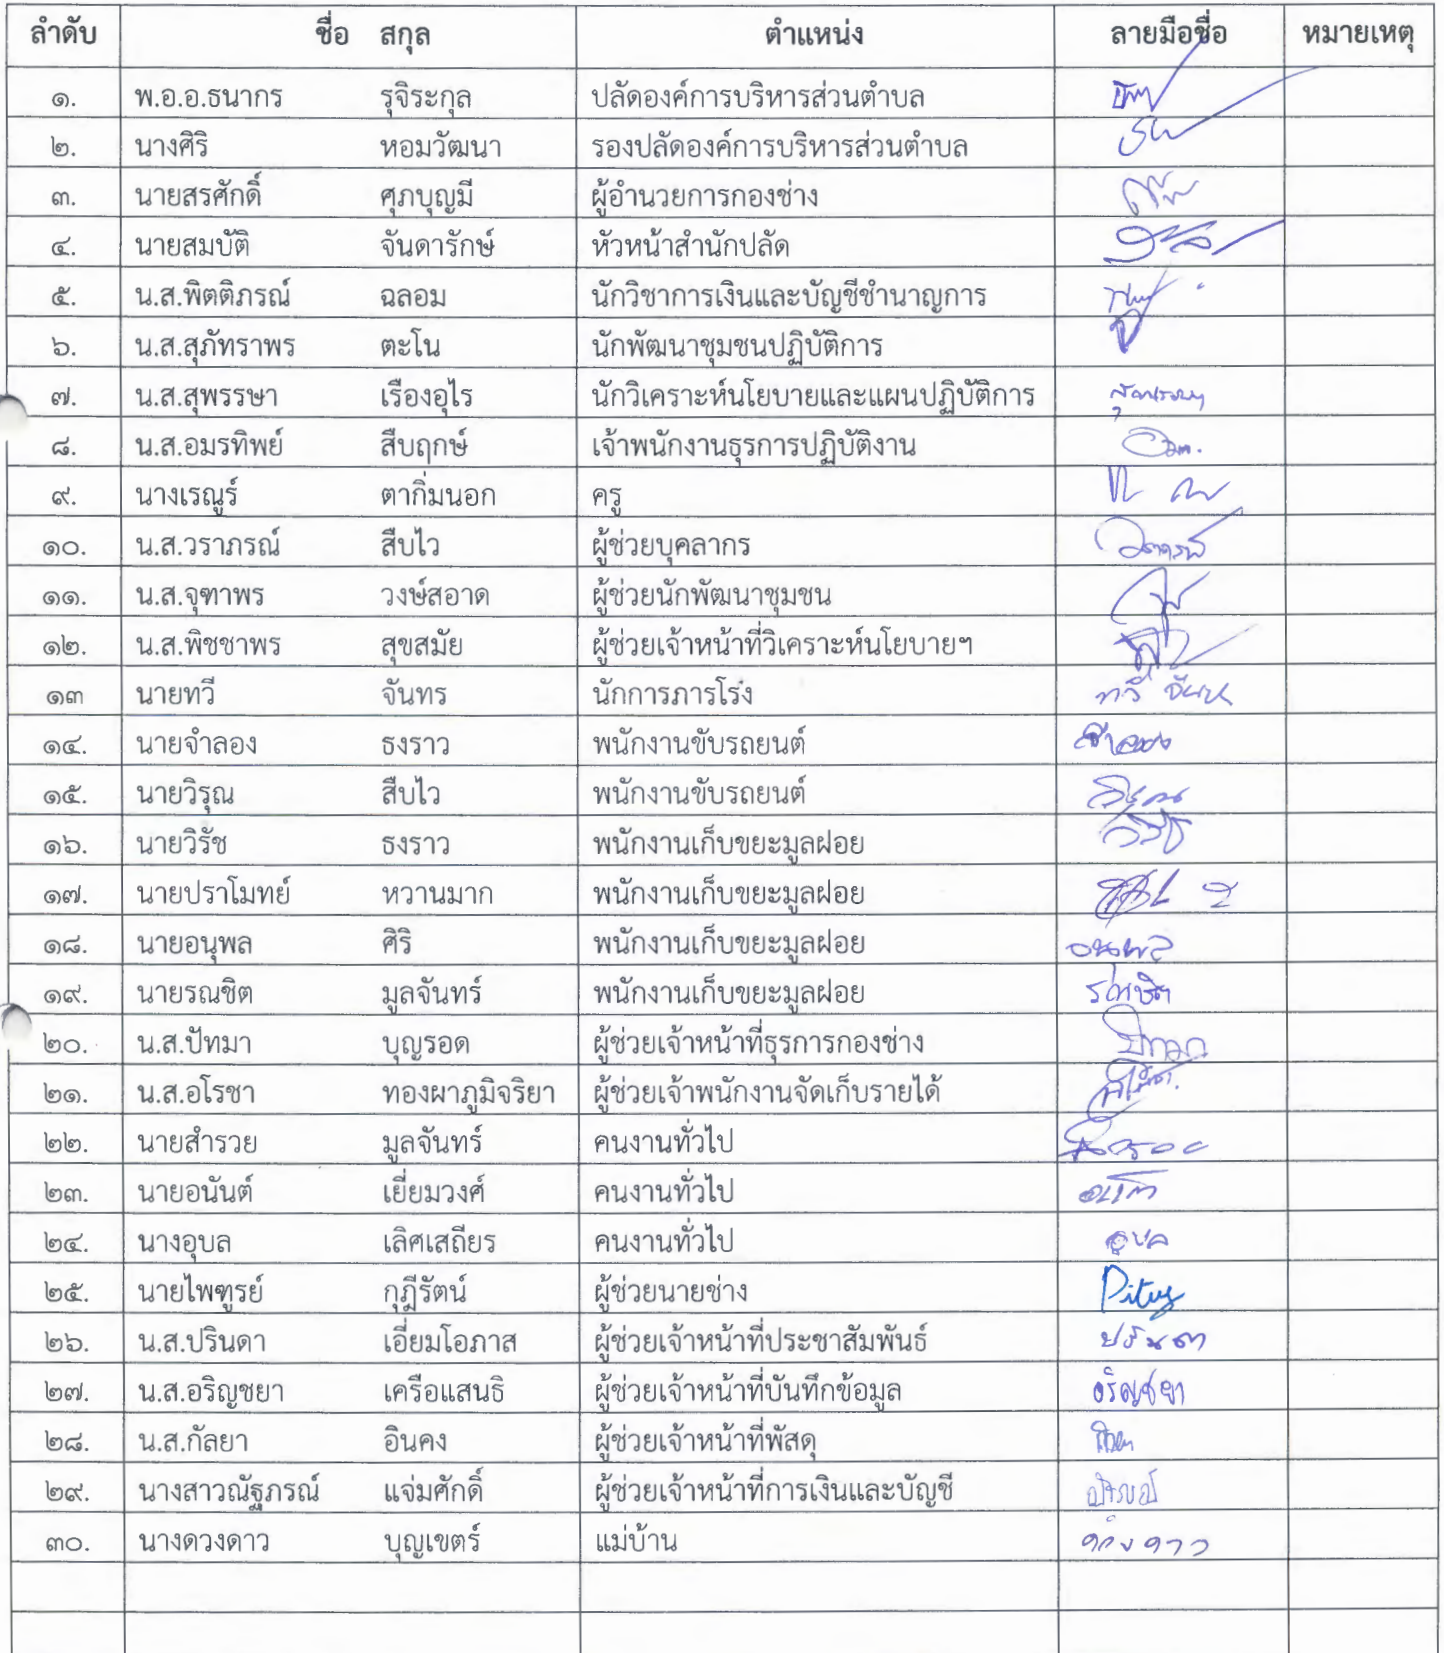 ลำดับ ชื่อ สกุล ตำแหน่ง ลายมือชื่อ หมายเหตุ
๑. พ.อ.อ.ธนากร รุจิระกุล ปลัดองค์การบริหารส่วนตำบล
๒. นางศิริ หอมวัฒนา รองปลัดองค์การบริหารส่วนตำบล
๓. นายสรศักดิ์ ศุภบุญมี ผู้อำนวยการกองช่าง
๔. นายสมบัติ จันดารักษ์ หัวหน้าสำนักปลัด
๕. น.ส.พิตติภรณ์ ฉลอม นักวิชาการเงินและบัญชีชำนาญการ
๖. น.ส.สุภัทราพร ตะโน นักพัฒนาชุมชนปฏิบัติการ
๗. น.ส.สุพรรษา เรืองอุไร นักวิเคราะห์นโยบายและแผนปฏิบัติการ
๘. น.ส.อมรทิพย์ สืบฤกษ์ เจ้าพนักงานธุรการปฏิบัติงาน
๙. นางเรณูร์ ตากิ่มนอก ครู
๑๐. น.ส.วราภรณ์ สืบไว ผู้ช่วยบุคลากร
๑๑. น.ส.จุฑาพร วงษ์สอาด ผู้ช่วยนักพัฒนาชุมชน
๑๒. น.ส.พิชชาพร สุขสมัย ผู้ช่วยเจ้าหน้าที่วิเคราะห์นโยบายฯ
๑๓ นายทวี จันทร นักการภารโรง ทวี จันทร
๑๔. นายจำลอง ธงราว พนักงานขับรถยนต์ จำลอง
๑๕. นายวิรุณ สืบไว พนักงานขับรถยนต์
๑๖. นายวิรัช ธงราว พนักงานเก็บขยะมูลฝอย
๑๗. นายปราโมทย์ หวานมาก พนักงานเก็บขยะมูลฝอย
๑๘. นายอนุพล ศิริ พนักงานเก็บขยะมูลฝอย อนุพล
๑๙. นายรณชิต มูลจันทร์ พนักงานเก็บขยะมูลฝอย รณชิต
๒๐. น.ส.ปัทมา บุญรอด ผู้ช่วยเจ้าหน้าที่ธุรการกองช่าง
๒๑. น.ส.อโรชา ทองผาภูมิจริยา ผู้ช่วยเจ้าพนักงานจัดเก็บรายได้
๒๒. นายสำรวย มูลจันทร์ คนงานทั่วไป
๒๓. นายอนันต์ เยี่ยมวงศ์ คนงานทั่วไป
๒๔. นางอุบล เลิศเสถียร คนงานทั่วไป อุบล
๒๕. นายไพฑูรย์ กุฎีรัตน์ ผู้ช่วยนายช่าง
๒๖. น.ส.ปรินดา เอี่ยมโอภาส ผู้ช่วยเจ้าหน้าที่ประชาสัมพันธ์ ปรินดา
๒๗. น.ส.อริญชยา เครือแสนธิ ผู้ช่วยเจ้าหน้าที่บันทึกข้อมูล อริญชยา
๒๘. น.ส.กัลยา อินคง ผู้ช่วยเจ้าหน้าที่พัสดุ
๒๙. นางสาวณัฐภรณ์ แจ่มศักดิ์ ผู้ช่วยเจ้าหน้าที่การเงินและบัญชี
๓๐. นางดวงดาว บุญเขตร์ แม่บ้าน ดวงดาว